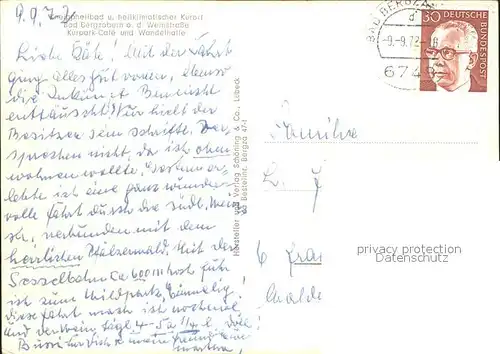 9.9.72
Kneippheilbad u. heilklimatischer Kurort
Bad Bergzabern a. d. Weinstraße
Kurpark-Café und Wandelhalle
Liebe Käte! Mit der Fahrt
ging alles gut voran, ebenso
die
enttäuscht! Nur hielt der
Besitzer sein
sprechen nicht, da ich oben
wohnen wollte. Gestern er-
lebte ich eine ganz wunder-
volle Fahrt durch die südl. Wein-
str., verbunden mit dem
herrlichen Pfälzerwald. Mit der
Sesselbahn ca 600 m hoch fuhr
ich zum Wildpark,
diese Fahrt mach ich nochmal
und der Wein, tägl. 4-5 a 1/4 l.
Bussi für Dich
Martha
Hersteller und Verlag Schöning & Co., Lübeck
Bestellnr. Bergza 47-1
BAD BERGZA
d
-9.-9.72-18
6748
30 DEUTSCHE
BUNDESPOST
Familie
L. F
6 Fran
Walde
privacy protection
Datenschutz